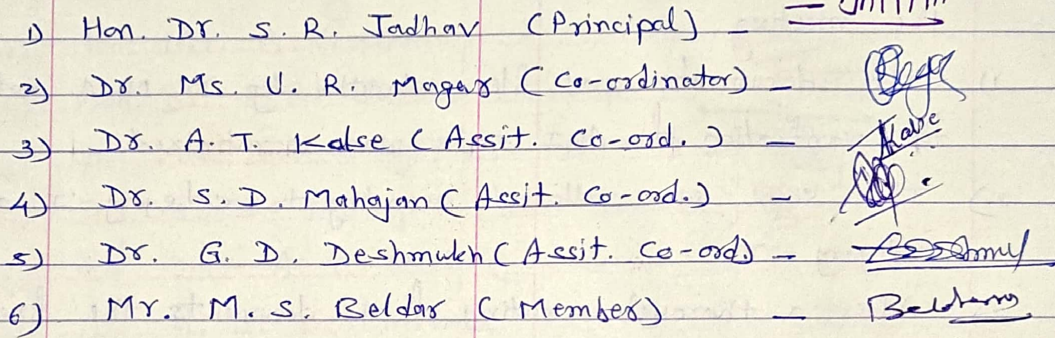 1) Hon. Dr. S. R. Jadhav (Principal) -
2) Dr. Ms. U. R. Magar (Co-ordinator) -
3) Dr. A. T. Kalse (Assit. Co-ord.) -
4) Dr. S. D. Mahajan (Assit. Co-ord.) -
5) Dr. G. D. Deshmukh (Assit. Co-ord) -
6) Mr. M. S. Beldar (Member) -